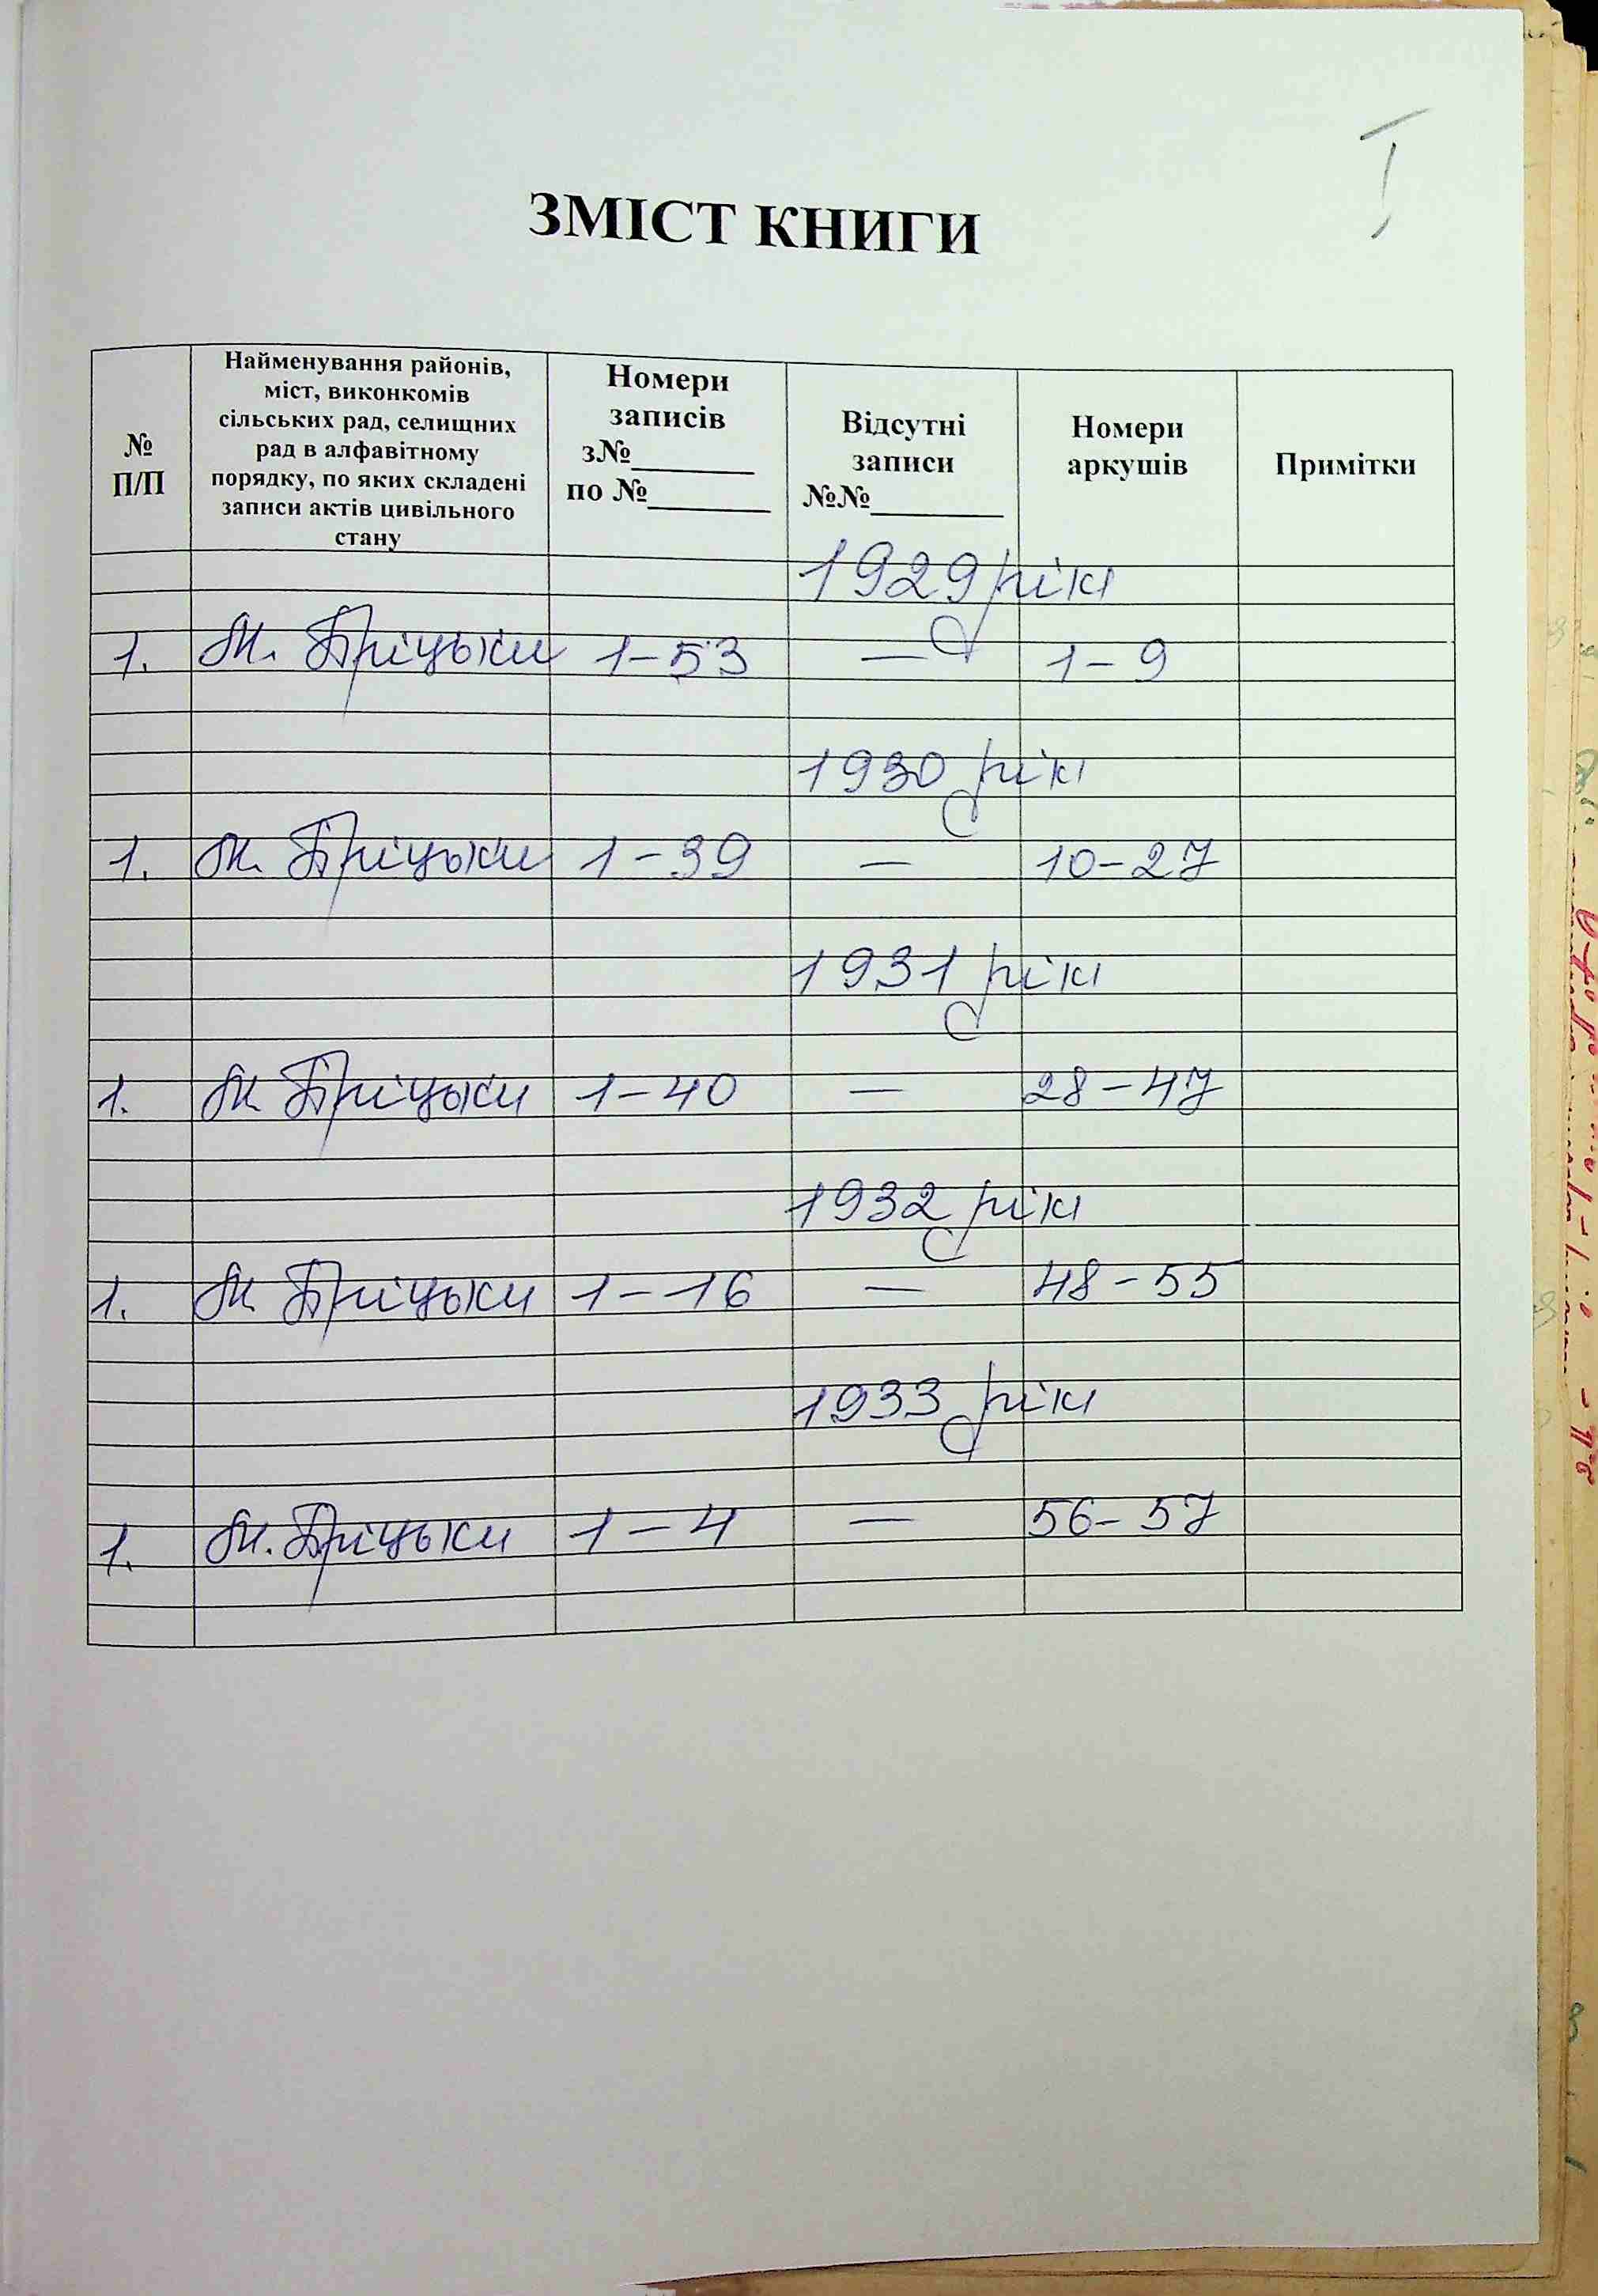 I
ЗМІСТ КНИГИ
№ П/П
Найменування районів, міст, виконкомів сільських рад, селищних рад в алфавітному порядку, по яких складені записи актів цивільного стану
Номери записів з№_______ по №_______
Відсутні записи №№_______
Номери аркушів
Примітки
1929 рік
1. М. Гріцьки 1-53 — 1-9
1930 рік
1. М. Гріцьки 1-39 — 10-27
1931 рік
1. М. Гріцьки 1-40 — 28-47
1932 рік
1. М. Гріцьки 1-16 — 48-55
1933 рік
1. М. Гріцьки 1-4 — 56-57